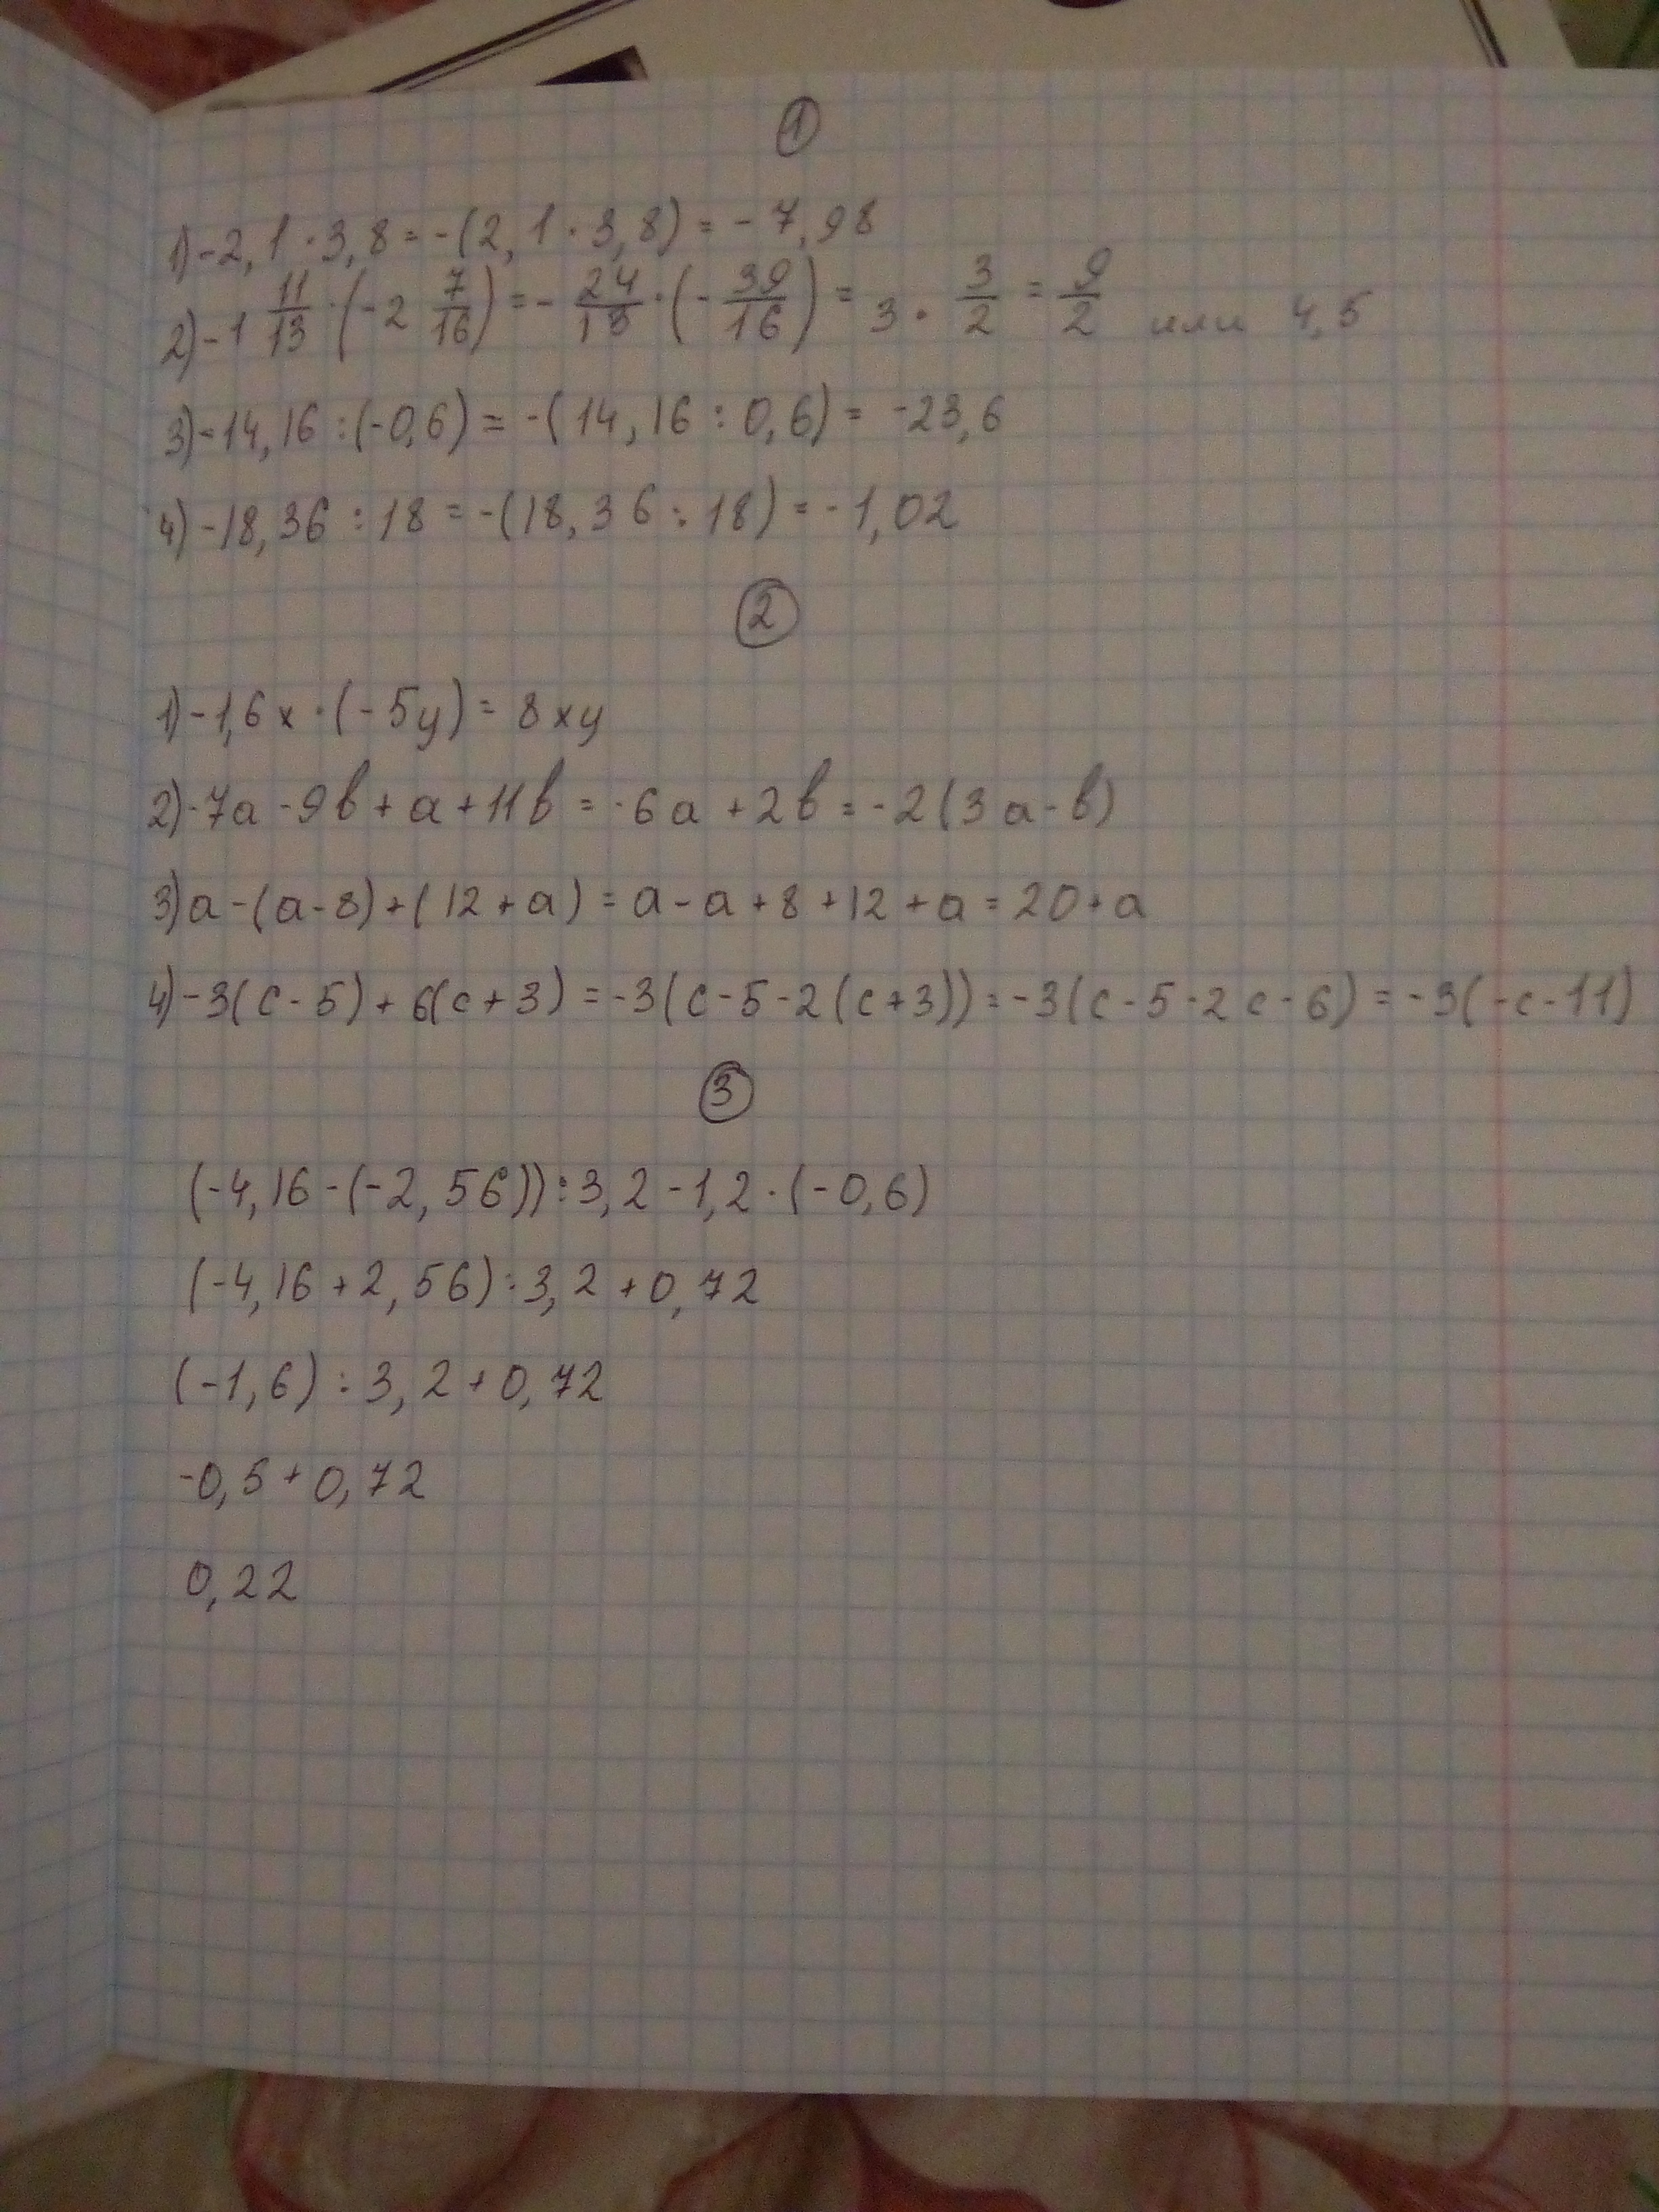 1
1) -2,1 · 3,8 = -(2,1 · 3,8) = -7,98
2) -1 11/13 · (-2 7/16) = - 24/13 · (- 39/16) = 3 · 3/2 = 9/2 или 4,5
3) -14,16 : (-0,6) = -(14,16 : 0,6) = -23,6
4) -18,36 : 18 = -(18,36 : 18) = -1,02
2
1) -1,6x · (-5y) = 8xy
2) -7a - 9b + a + 11b = -6a + 2b = -2(3a - b)
3) a - (a - 8) + (12 + a) = a - a + 8 + 12 + a = 20 + a
4) -3(c - 5) + 6(c + 3) = -3(c - 5 - 2(c + 3)) = -3(c - 5 - 2c - 6) = -3(-c - 11)
3
(-4,16 - (-2,56)) : 3,2 - 1,2 · (-0,6)
(-4,16 + 2,56) : 3,2 + 0,72
(-1,6) : 3,2 + 0,72
-0,5 + 0,72
0,22